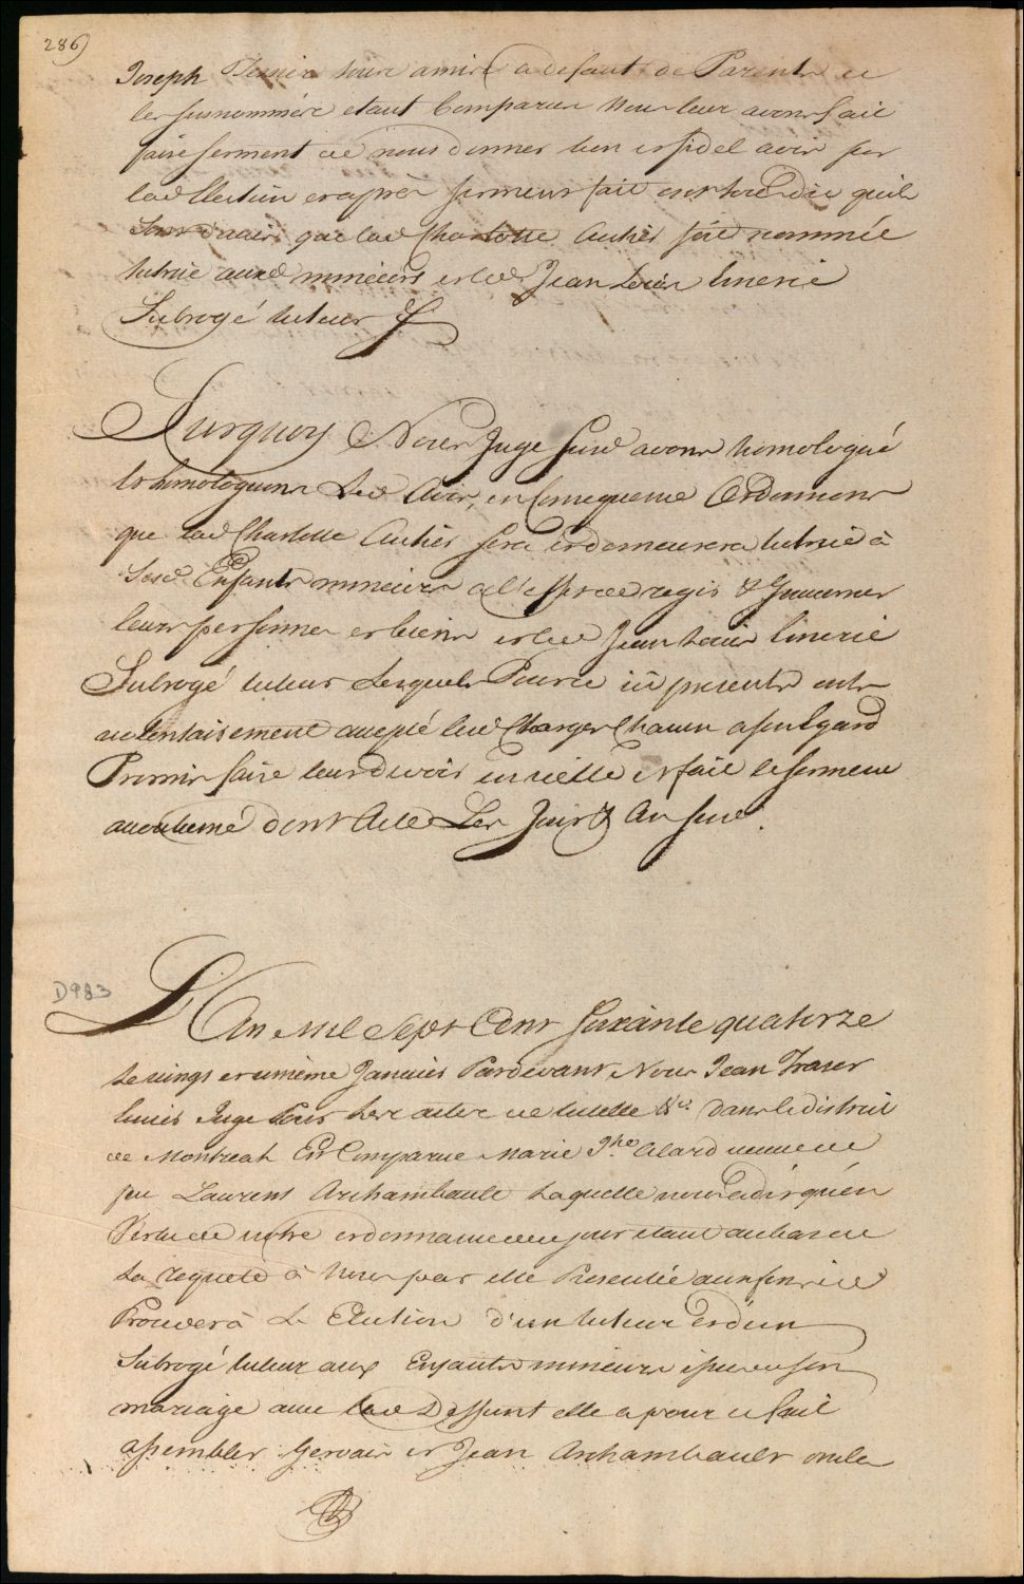 286)
Joseph tous amis a defaut de Parents et
les susnommés etant Comparus Nous leur avons fait
faire serment de nous donner bon et fidel avis sur
lad Election et après serment fait ont tous dit quils
sont d'avis que lad Charlotte Autier soit nommée
tutrice auxd mineurs et led Jean Louis
Subrogé tuteur &
Surquoy Nous Juge susd avons homologué
et homologuons Led Avis, en Consequence Ordonnons
que lad Charlotte Autier sera et demeurera tutrice à
Sesd Enfants mineurs a l'effet de regir & Gouverner
leurs personnes et biens et led Jean Louis
Subrogé tuteur Lesquels Pource icy presents ont
volontairement accepté lesd Charges Chacun a son Egard
Promis faire leur devoir en icelle et fait le serment
accoutumé dont Acte Les Jour & An susd.
D983
L'An Mil Sept Cent Soixante quatorze
le vingt et unième Janvier Pardevant Nous Jean Fraser
Ecuier Juge Pour Les actes de tutelle &ca dans le district
de Montreal Est Comparue Marie Jhe Alard veuve de
feu Laurent Archambault Laquelle nous a dit qu'en
Vertu de notre ordonnance de ce jour etant au bas de
La requete à Nous par elle Presentée aux fins de
Proceder à L Election d'un tuteur et d'un
Subrogé tuteur aux Enfants mineurs issus de son
mariage avec led Deffunt elle a pour ce fait
assembler Gervais et Jean Archambault oncles